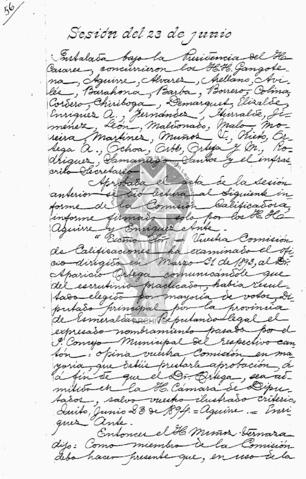 56
Sesión del 23 de junio
Instalada bajo la Presidencia del H.
Casares, concurrieron los H.H. Gangote-
na, Aguirre, Alvarez, Arellano, Avi-
lés, Barahona, Barba, Borrero, Colina,
Cordero, Chiriboga, Demarquet, Elizalde,
Enríquez A., Fernández, Iturralde, Ji-
ménez, León, Maldonado, Malo, Mo-
reira, Martínez, Muñoz V., Riofrío, Or-
tega A., Ochoa, Orbe, Ortega J. M., Ro-
dríguez, Samaniego, Santos y el infras-
crito Secretario.
Aprobada el acta de la sesión
anterior se dió lectura al siguiente in-
forme de la Comisión Calificadora,
informe firmado sólo por los H.H.
Aguirre y Enríquez Ante.
Vuestra Comisión
de Calificaciones ha examinado el ofi-
cio dirigido en Marzo 21 de 1893, al Dr.
Aparicio Ortega comunicándole que
del escrutinio practicado, había resul-
tado elegido por mayoría de votos, Di-
putado principal por la provincia
de Esmeraldas. Reputando legal el
expresado nombramiento pasado por el
I. Concejo Municipal del respectivo can-
tón: opina vuestra Comisión, en ma-
yoría, que debéis prestarle aprobación, á
fin de que el Dr. Ortega, sea ad-
mitido en la H. Cámara de Dipu-
tados, salvo vuestro ilustrado criterio.
Quito, Junio 23 de 1894. = Aguirre. = Enrí-
quez Ante.
Entonces el H. Muñoz Vernaza
dijo: Como miembro de la Comisión
debo hacer presente que, en uso de la